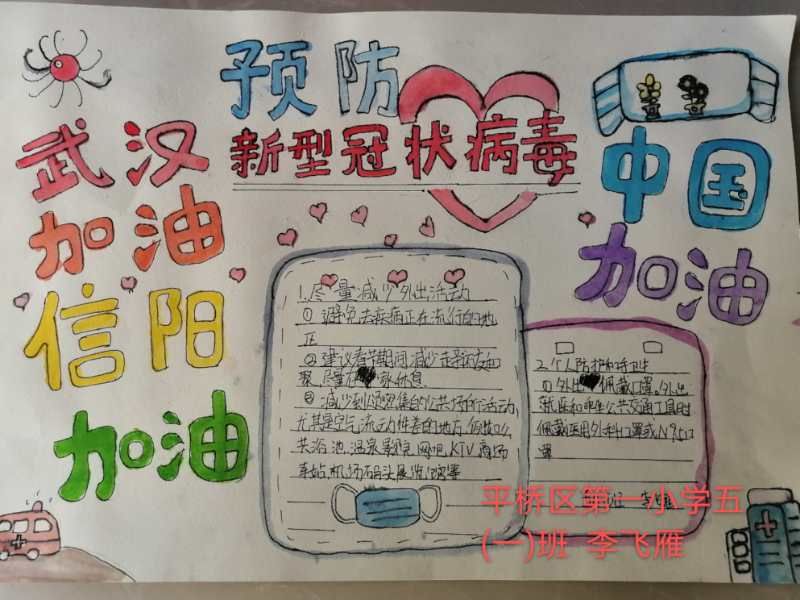 预防
新型冠状病毒
武汉
加油
信阳
加油
中国
加油
1.尽量减少外出活动
① 避免去疾病正在流行的地
区
② 建议春节期间减少走亲访友和
聚
尽量在
休息
③ 减少到人员密集的公共场所活动,
尤其是空气流动性差的地方,例如公
共浴池、温泉、影院、网吧、KTV、商场
车站、机场、码头、展览
2.个人防护和手卫生
① 外出佩戴口罩。外出
公共交通工具时
佩戴医用外科口罩或N95口
罩
平桥区第一小学五
(一)班 李飞雁